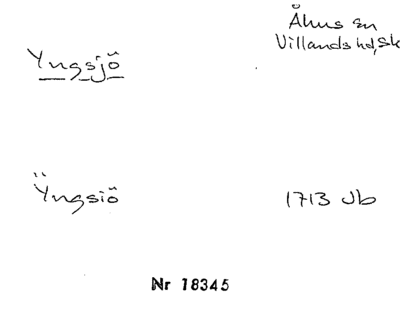 Yngsjö
Åhus sn
Villands hd, Sk
Ÿngsiö
1713 Jb
Nr 18345